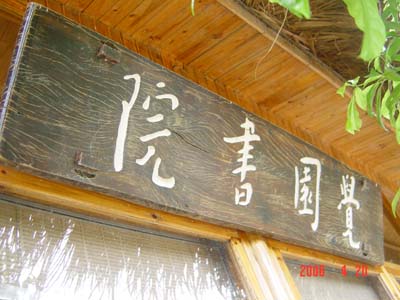 覺園書院
2008 4 20